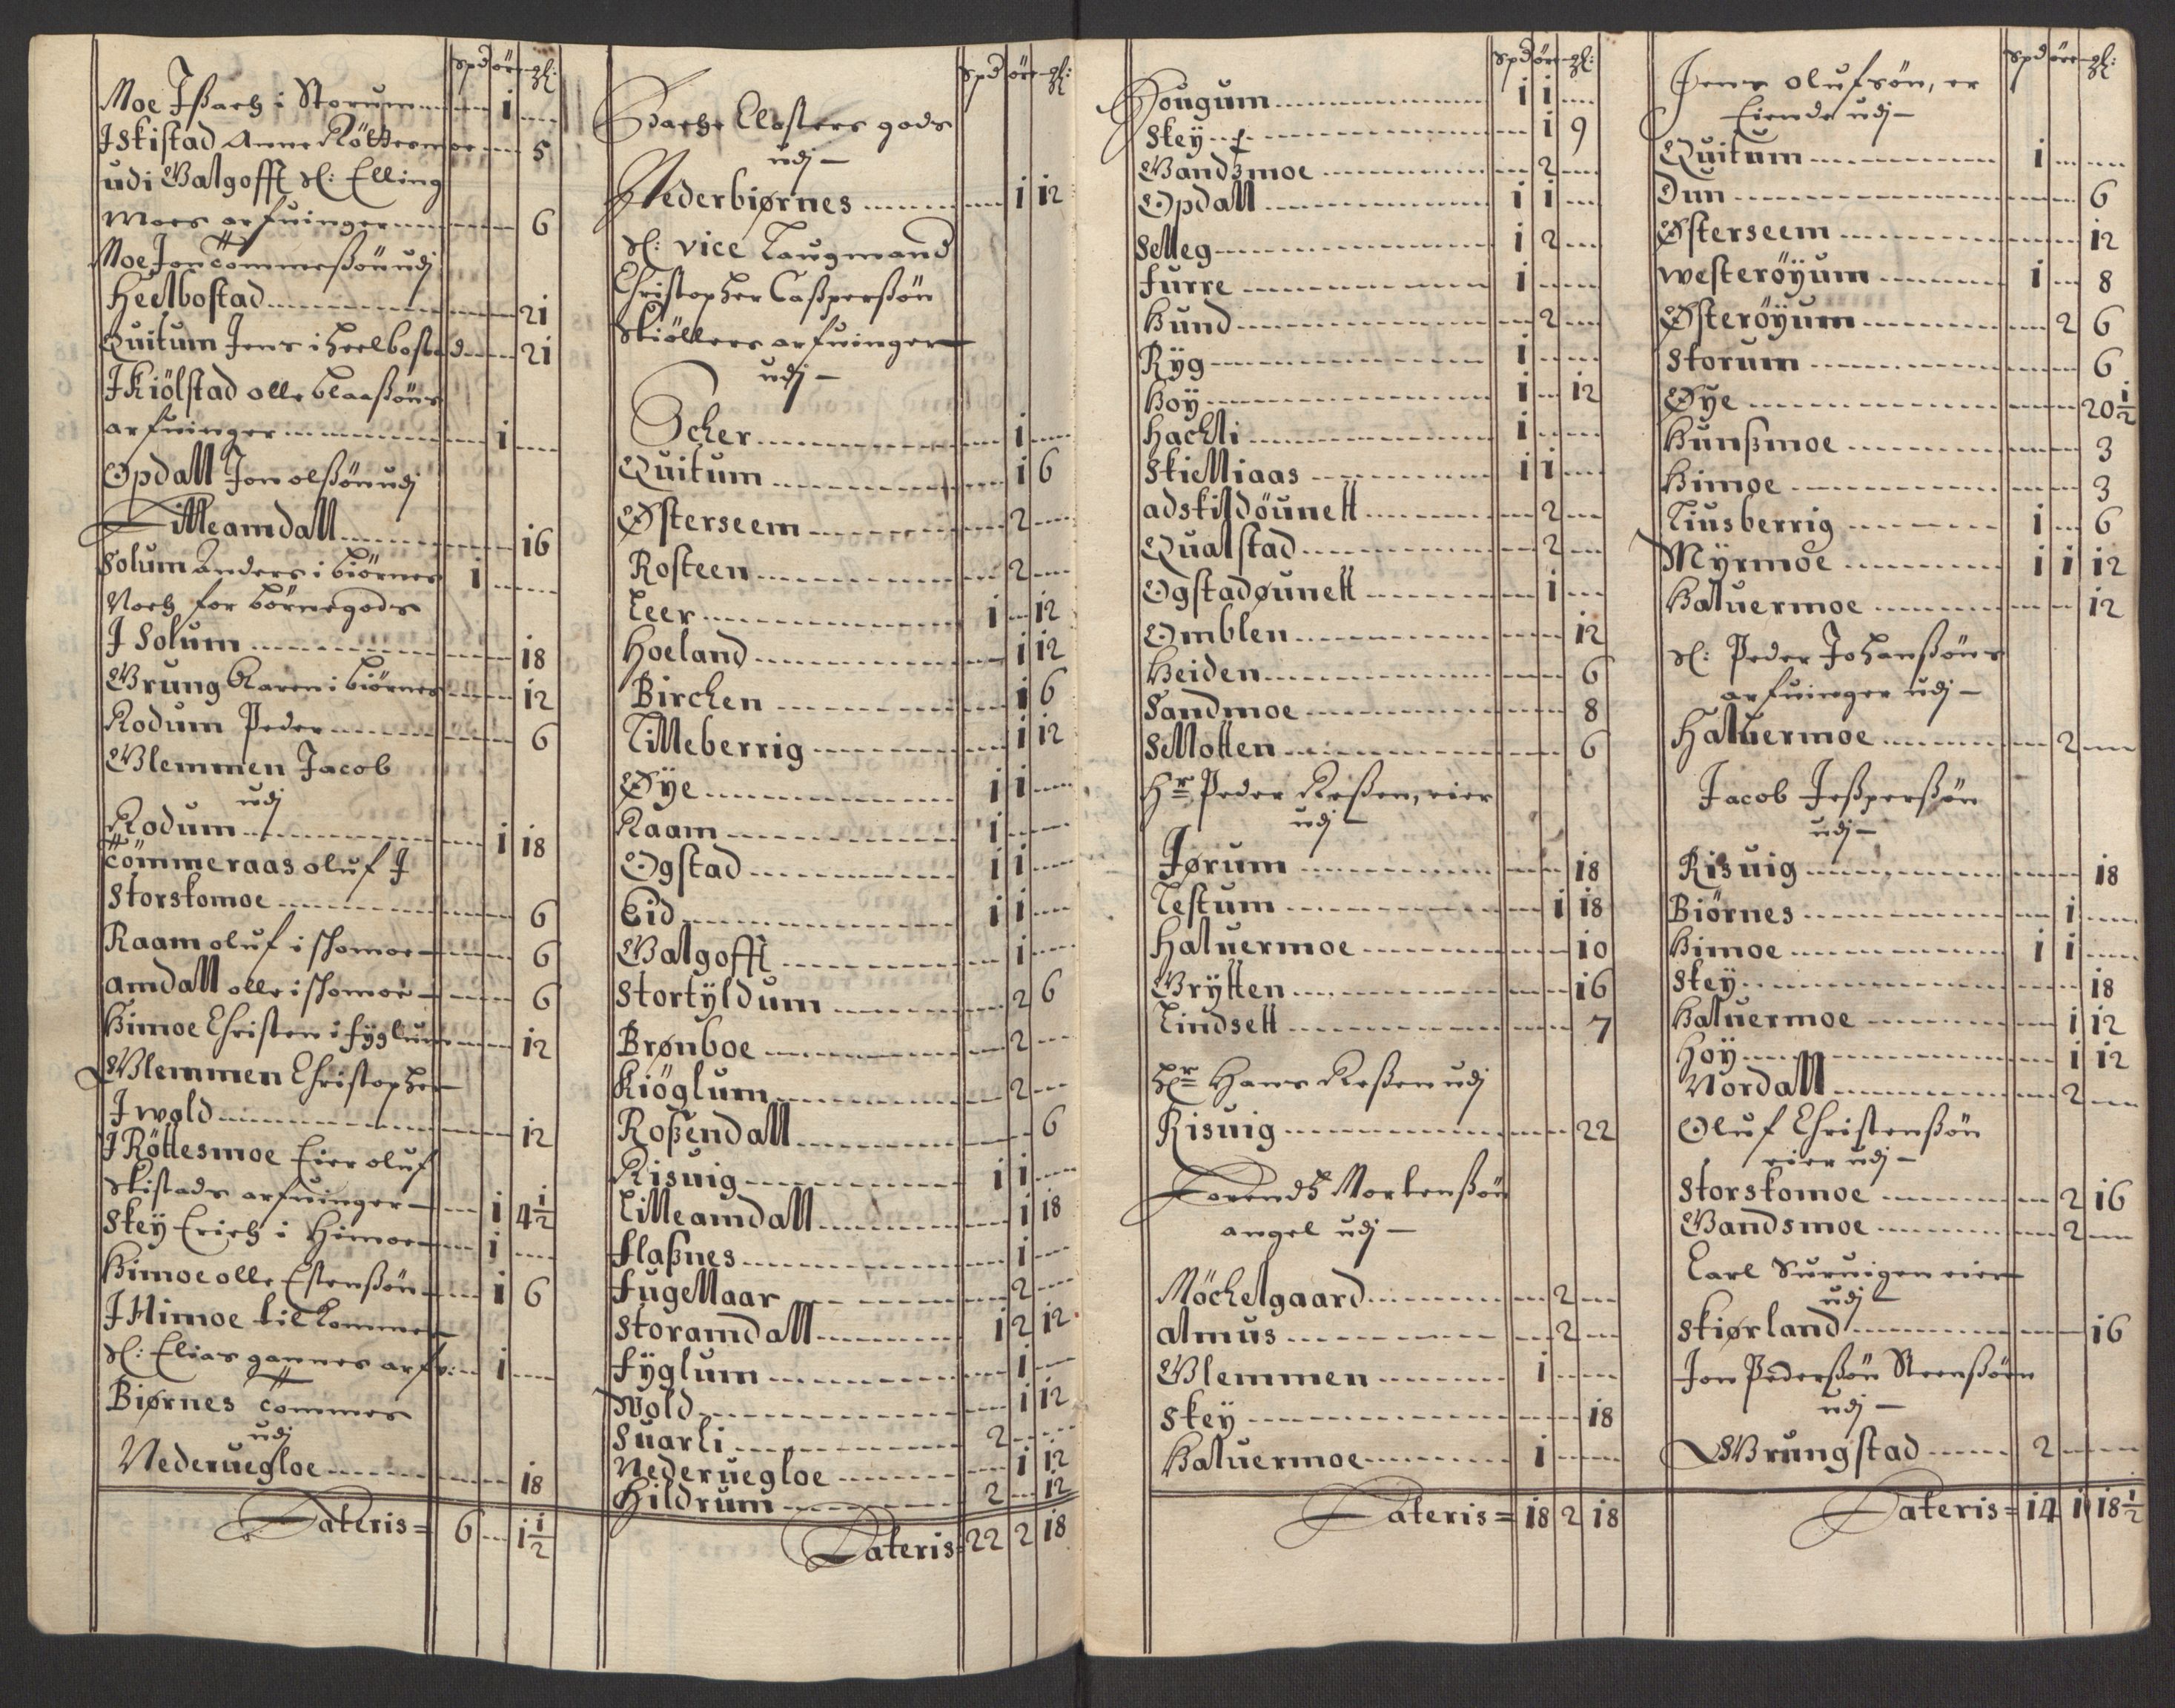 Spd öre gl:
Moe Jßach i Storum ... 1 ...
J Skistad Anne Röttesmoe ... 5
udi Walgofft Sl: Elling
Moes arfuinger ... 6
Moe Jon Tömmeßön udj
Heelbostad ... 21
Quitum Jens i Heelbostad ... 21
J Kiölstad olle blaaßöns
arfuinger ... 1 ...
Opdall Jon olßön udj
Lilleamdall ... 16
Solum Anders i Biörnes 1 ...
Noch for börnegods
J Solum ... 18
Grung Karen i biörnes ... 12
Rodum Peder ... 6
Glemmen Jacob
udj
Rodum ... 1 18
Tömmeraas oluf J
Storskomoe ... 6
Raam oluf i skomoe ... 6
amdall olle i skomoe ... 6
Himoe Christen i fyglum ... 12
Glemmen Christopher
J wold ... 12
J Röttesmoe Eier oluf
Skistads arfuinger ... 1 4 1/2
Skey Erich i Himoe ... 1 ...
Himoe olle Estensßön ... 1 6
J Himoe tilkommer
Sl: Elias gannes arfu: ... 1 ...
Biørnes Tommes
udj
Nederuegloe ... 18
Lateris = 6 ... 1 1/2

Spd öre gl:
Bache Closters gods
udj
Nederbiørnes ... 1 12
Sl: vice Laugmand
Christopher Caßperßön
Skiöllers arfuinger
udj
Ocher ... 1 ...
Quitum ... 1 6
Østerseem ... 2 ...
Rosteen ... 2 ...
Leer ... 1 ... 12
Hoeland ... 1 12
Birchen ... 1 6
Lilleberrig ... 1 12
Øye ... 1 1 ...
Raam ... 1 ...
Ogstad ... 1 1 ...
Eid ... 1 1 ...
Walgofft ... 1 ...
Stortÿldum ... 2 6
Brønboe ... 2 ...
Kiöglum ... 2 ...
Roßendall ... 6
Risuig ... 1 1 ...
Lilleamdall ... 1 18
flaßnes ... 1 ...
fugellaar ... 2 ...
Storamdall ... 1 2 12
fÿglum ... 1 ...
Wold ... 1 12
Suarli ... 2 ...
Nederuegloe ... 1 12
Hildrum ... 2 ... 12
Lateris = 22 2 18

Spd öre gl:
Hougum ... 1 1 ...
Skey ... 1 9
Wandsmoe ... 2 ...
Opdall ... 1 1 ...
Selleg ... 1 2 ...
furre ... 1 ...
Hund ... 2 ...
Rÿg ... 1 ...
Hoÿ ... 1 ... 12
Hachli ... 1 ...
Skielliaas ... 1 1 ...
adskildöunett ... 2 ...
Qualstad ... 2 ...
Ogstadøunett ... 1 ...
Omblen ... 12
Heiden ... 6
Sandmoe ... 8
Sellotten ... 6
Hr. Peder Reßen, eier
udj
Jørum ... 18
Testum ... 1 18
Haluermoe ... 10
Grÿtten ... 16
Lindsett ... 7
Hr. Hans Reßen udj
Risuig ... 22
Lorendß Mortenßön
angel udj
Möchelgaard ... 2 ...
almus ... 2 ...
Glemmen ... 1 ...
Skey ... 18
Haluermoe ... 1 ...
Lateris = 18 2 18

Spd öre gl:
Jens olufsön, er
Eiende udj
Quitum ... 1 ...
Dun ... 6
Østerseem ... 12
westeröÿum ... 1 ... 8
Østeröÿum ... 2 6
Storum ... 6
Øye ... 20 1/2
Hunßmoe ... 3
Himoe ... 3
Liusberrig ... 1 ... 6
Mÿrmoe ... 1 1 12
Haluermoe ... 12
Sl: Peder Johanßöns
arfuinger udj
Haluermoe ... 2 ...
Jacob Jeßperßön
udj
Risuig ... 18
Biörnes ... 1 ...
Himoe ... 1 1 ...
Skey ... 18
Haluermoe ... 1 12
Hoÿ ... 1 12
Nordall ... 2 ...
Oluf Christenßön
eier udj
Storskomoe ... 2 16
Wandsmoe ... 2 ...
Carl Suruigen eier
udj
Skiørland ... 16
Jon Pederßön Steenßöen
udj
Grungstad ... 2 ...
Lateris = 14 1 18 1/2